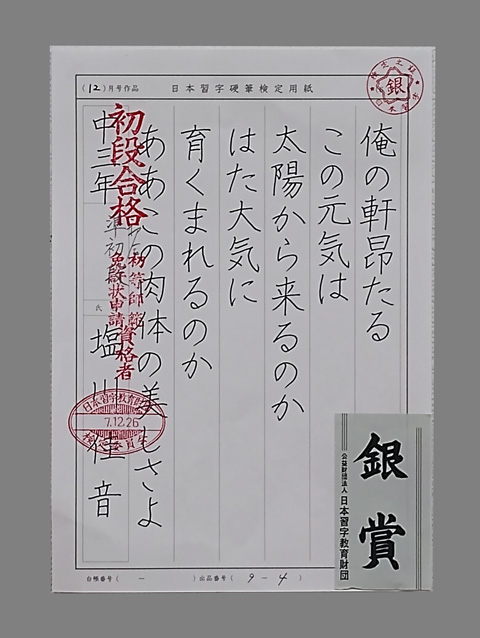 (12)月号作品
日本習字硬筆検定用紙
検定之証
銀
日本習字
俺の軒昂たる
この元気は
太陽から来るのか
はた大気に
育くまれるのか
ああこの肉体の美しさよ
中三年
準初段
氏
塩川佳音
初段合格
初等師範資格者
免許状申請
日本習字教育財団
7.12.26
銀賞
公益財団法人
日本習字教育財団
台帳番号( ー )出品番号( 9-4 )